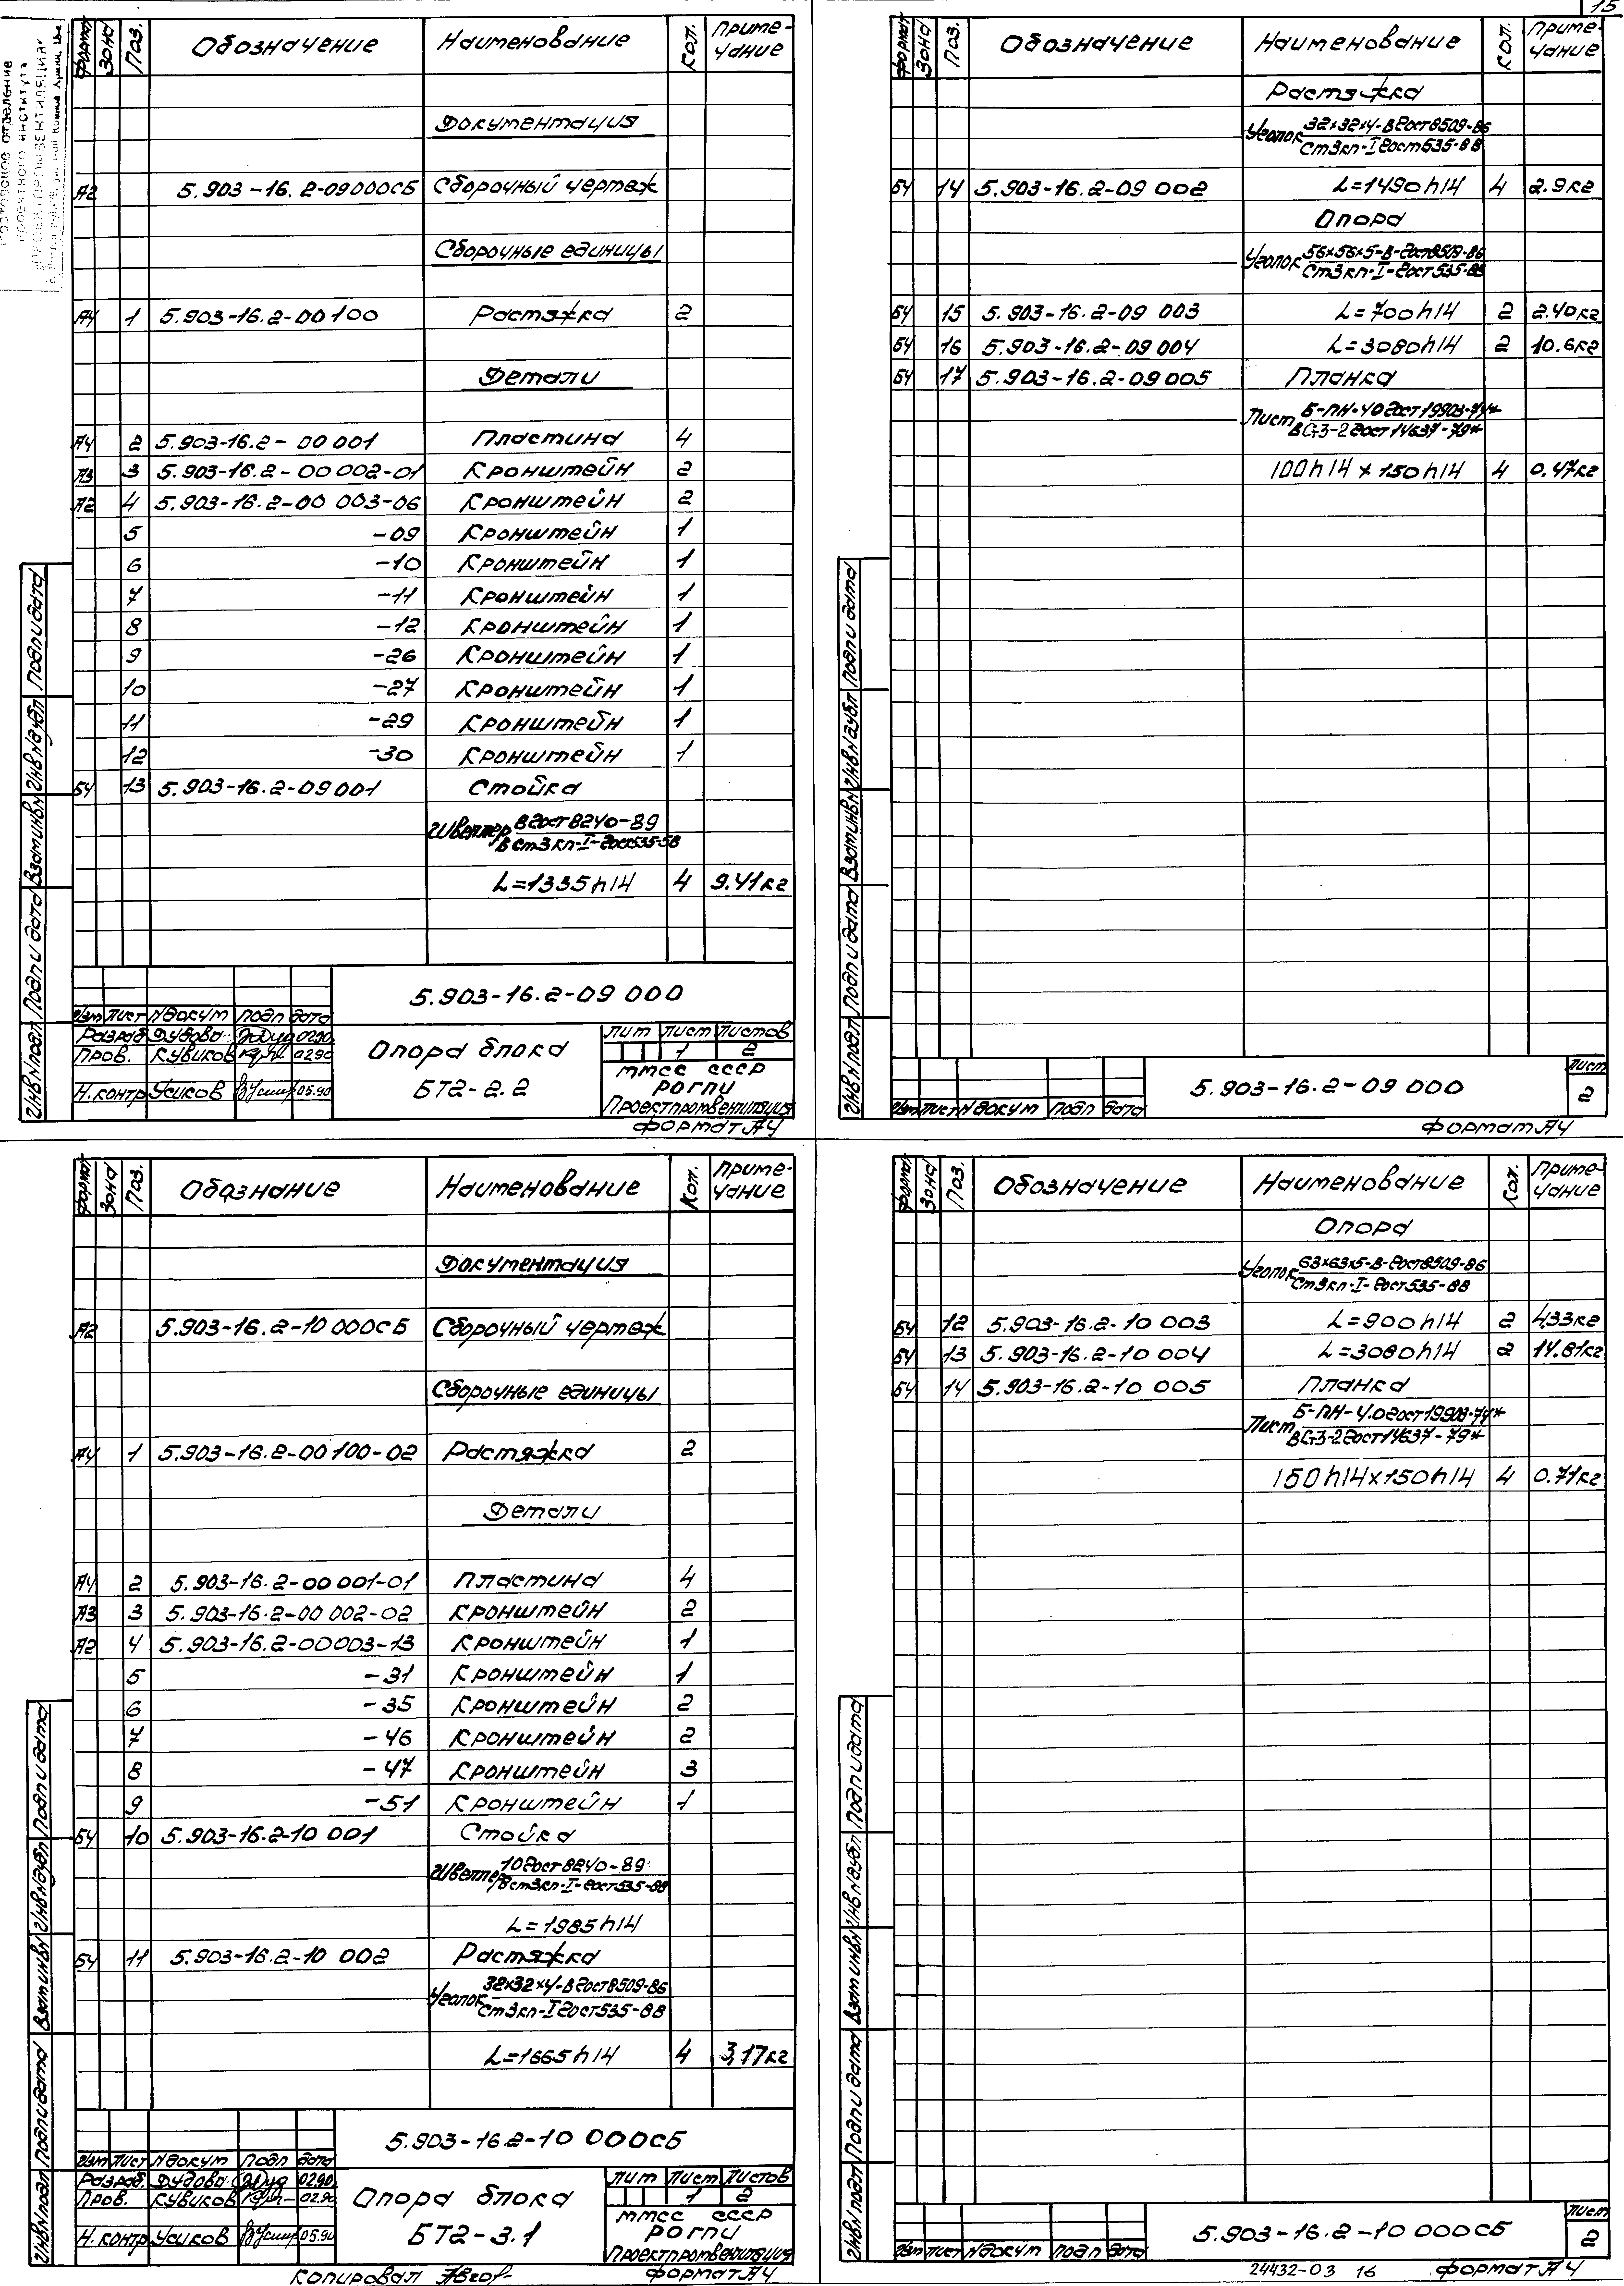 15
Ростовское отделение
проектного института
Формат Зона Поз. Обозначение Наименование Кол. Приме-
чание
Документация
А2 5.903-16.2-09000СБ Сборочный чертеж
Сборочные единицы
А4 1 5.903-16.2-00100 Растяжка 2
Детали
А4 2 5.903-16.2-00 001 Пластина 4
А3 3 5.903-16.2-00 002-01 Кронштейн 2
А2 4 5.903-16.2-00 003-06 Кронштейн 2
5 -09 Кронштейн 1
6 -10 Кронштейн 1
7 -11 Кронштейн 1
8 -12 Кронштейн 1
9 -26 Кронштейн 1
10 -27 Кронштейн 1
11 -29 Кронштейн 1
12 -30 Кронштейн 1
БЧ 13 5.903-16.2-09 001 Стойка
Швеллер 8 ГОСТ 8240-89
ВСт3кп-I-ГОСТ 535-58
L=1335h14 4 9.41кг
Инв N подл Подп и дата Взам инв N Инв N дубл Подп и дата
5.903-16.2-09 000
Изм Лист N докум Подп Дата
Разраб Дудова 02.90
Пров. Кубиков 02.90
Н.контр Усиков 05.90
Опора блока
БТ2-2.2
Лит Лист Листов
1 2
ММСС СССР
РОГПИ
Проектпромвентиляция
Формат А4
Формат Зона Поз. Обозначение Наименование Кол. Приме-
чание
Растяжка
Уголок 32×32×4-В ГОСТ 8509-86
Ст3кп-I ГОСТ 535-88
БЧ 14 5.903-16.2-09 002 L=1490h14 4 2.9кг
Опора
Уголок 56×56×5-В-ГОСТ 8509-86
Ст3кп-I-ГОСТ 535-88
БЧ 15 5.903-16.2-09 003 L=700h14 2 2.40кг
БЧ 16 5.903-16.2-09 004 L=3080h14 2 10.6кг
БЧ 17 5.903-16.2-09 005 Планка
Лист Б-ПН-4.0 ГОСТ 19903-74*
ВСт3-2 ГОСТ 14637-79*
100h14 × 150h14 4 0.47кг
Инв N подл Подп и дата Взам инв N Инв N дубл Подп и дата
Изм Лист N докум Подп Дата
5.903-16.2-09 000
Лист
2
Формат А4
Формат Зона Поз. Обознание Наименование Кол. Приме-
чание
Документация
А2 5.903-16.2-10 000СБ Сборочный чертеж
Сборочные единицы
А4 1 5.903-16.2-00 100-02 Растяжка 2
Детали
А4 2 5.903-16.2-00 001-01 Пластина 4
А3 3 5.903-16.2-00 002-02 Кронштейн 2
А2 4 5.903-16.2-00003-13 Кронштейн 1
5 -31 Кронштейн 1
6 -35 Кронштейн 2
7 -46 Кронштейн 2
8 -47 Кронштейн 3
9 -51 Кронштейн 1
БЧ 10 5.903-16.2-10 001 Стойка
Швеллер 10 ГОСТ 8240-89
ВСт3кп-I-ГОСТ 535-88
L=1985h14
БЧ 11 5.903-16.2-10 002 Растяжка
Уголок 32×32×4-В ГОСТ 8509-86
Ст3кп-I ГОСТ 535-88
L=1665h14 4 3,17кг
Инв N подл Подп и дата Взам инв N Инв N дубл Подп и дата
5.903-16.2-10 000СБ
Изм Лист N докум Подп Дата
Разраб. Дудова 02.90
Пров. Кубиков 02.90
Н.контр Усиков 05.90
Опора блока
БТ2-3.1
Лит Лист Листов
1 2
ММСС СССР
РОГПИ
Проектпромвентиляция
Копировал
Формат А4
Формат Зона Поз. Обозначение Наименование Кол. Приме-
чание
Опора
Уголок 63×63×5-В-ГОСТ 8509-86
Ст3кп-I-ГОСТ 535-88
БЧ 12 5.903-16.2-10 003 L=900h14 2 4,33кг
БЧ 13 5.903-16.2-10 004 L=3080h14 2 14.81кг
БЧ 14 5.903-16.2-10 005 Планка
Лист Б-ПН-4.0 ГОСТ 19903-74*
ВСт3-2 ГОСТ 14637-79*
150h14×150h14 4 0.71кг
Инв N подл Подп и дата Взам инв N Инв N дубл Подп и дата
Изм Лист N докум Подп Дата
5.903-16.2-10 000СБ
Лист
2
24432-03 16 Формат А4